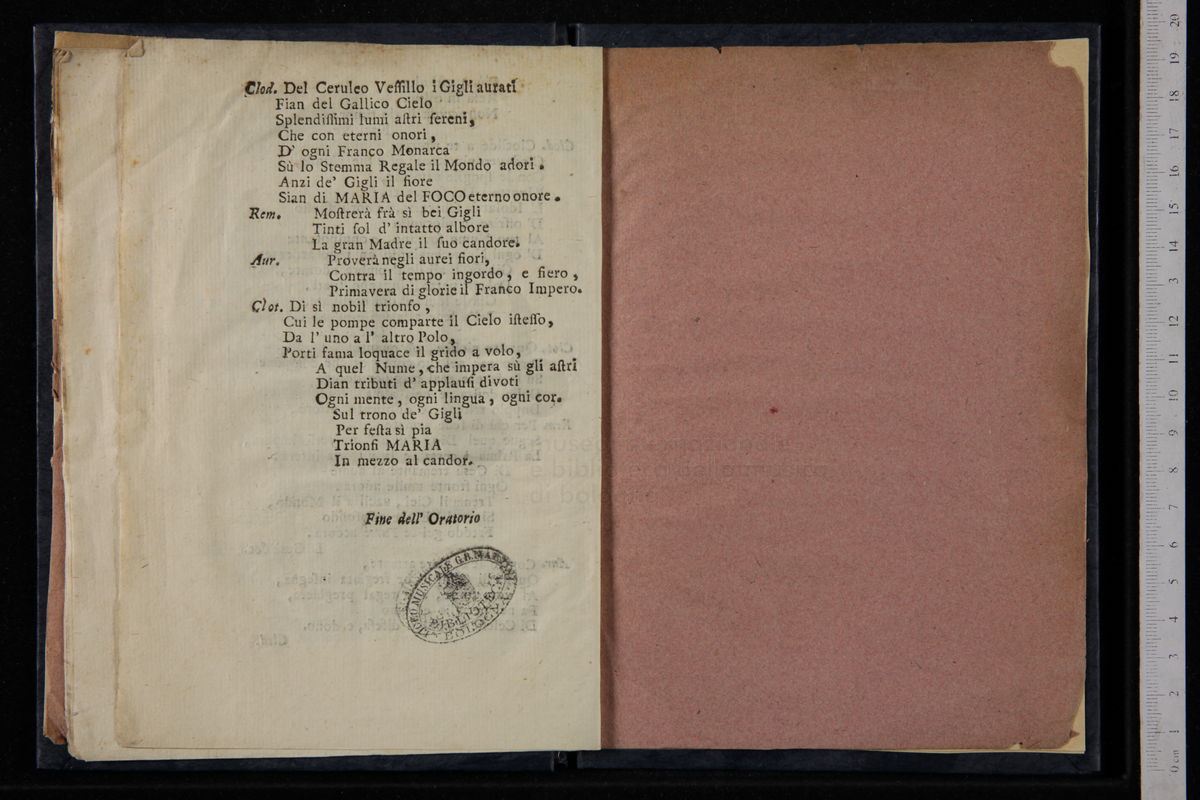 Clod. Del Ceruleo Veſſillo i Gigli aurati
Fian del Gallico Cielo
Splendiſſimi lumi aſtri ſereni,
Che con eterni onori,
D' ogni Franco Monarca
Sù lo Stemma Regale il Mondo adori.
Anzi de' Gigli il fiore
Sian di MARIA del FOCO eterno onore.
Rem. Moſtrerà frà sì bei Gigli
Tinti ſol d' intatto albore
La gran Madre il ſuo candore.
Aur. Proverà negli aurei fiori,
Contra il tempo ingordo, e fiero,
Primavera di glorie il Franco Impero.
Clot. Di sì nobil trionfo,
Cui le pompe comparte il Cielo iſteſſo,
Da l' uno a l' altro Polo,
Porti fama loquace il grido a volo,
A quel Nume, che impera sù gli aſtri
Dian tributi d' applauſi divoti
Ogni mente, ogni lingua, ogni cor.
Sul trono de' Gigli
Per feſta sì pia
Trionfi MARIA
In mezzo al candor.
Fine dell' Oratorio
LICEO MUSICALE G.B. MARTINI
BIBLIOTECA
BOLOGNA